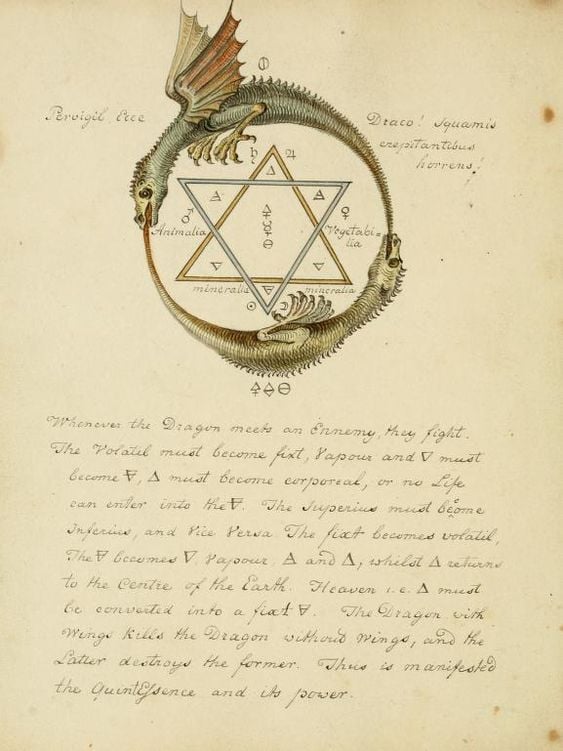 🜔
Pervigil Ecce
Draco! squamis
crepitantibus
horrens!
♄ ♃
🜂
🜁 🜁
♂ ♀
🜍
☿
🜔
Animalia
Vegetabi=
lia
🜄 🜄
mineralia 🜃 mineralia
☉ ☽
🜍 🜔
Whenever the Dragon meets an Ennemy, they fight.
The Volatil must become fixt, Vapour and 🜄 must
become 🜃, 🜂 must become corporeal, or no Life
can enter into the 🜃. The Superius must become
Inferius, and Vice Versa. The fixt becomes volatil,
The 🜃 becomes 🜄, Vapour, 🜁 and 🜂, whilst 🜂 returns
to the Centre of the Earth. Heaven i.e. 🜂 must
be converted into a fixt 🜃. The Dragon with
Wings kills the Dragon without Wings, and the
Latter destroys the former. Thus is manifested
the QuintEssence and its power.